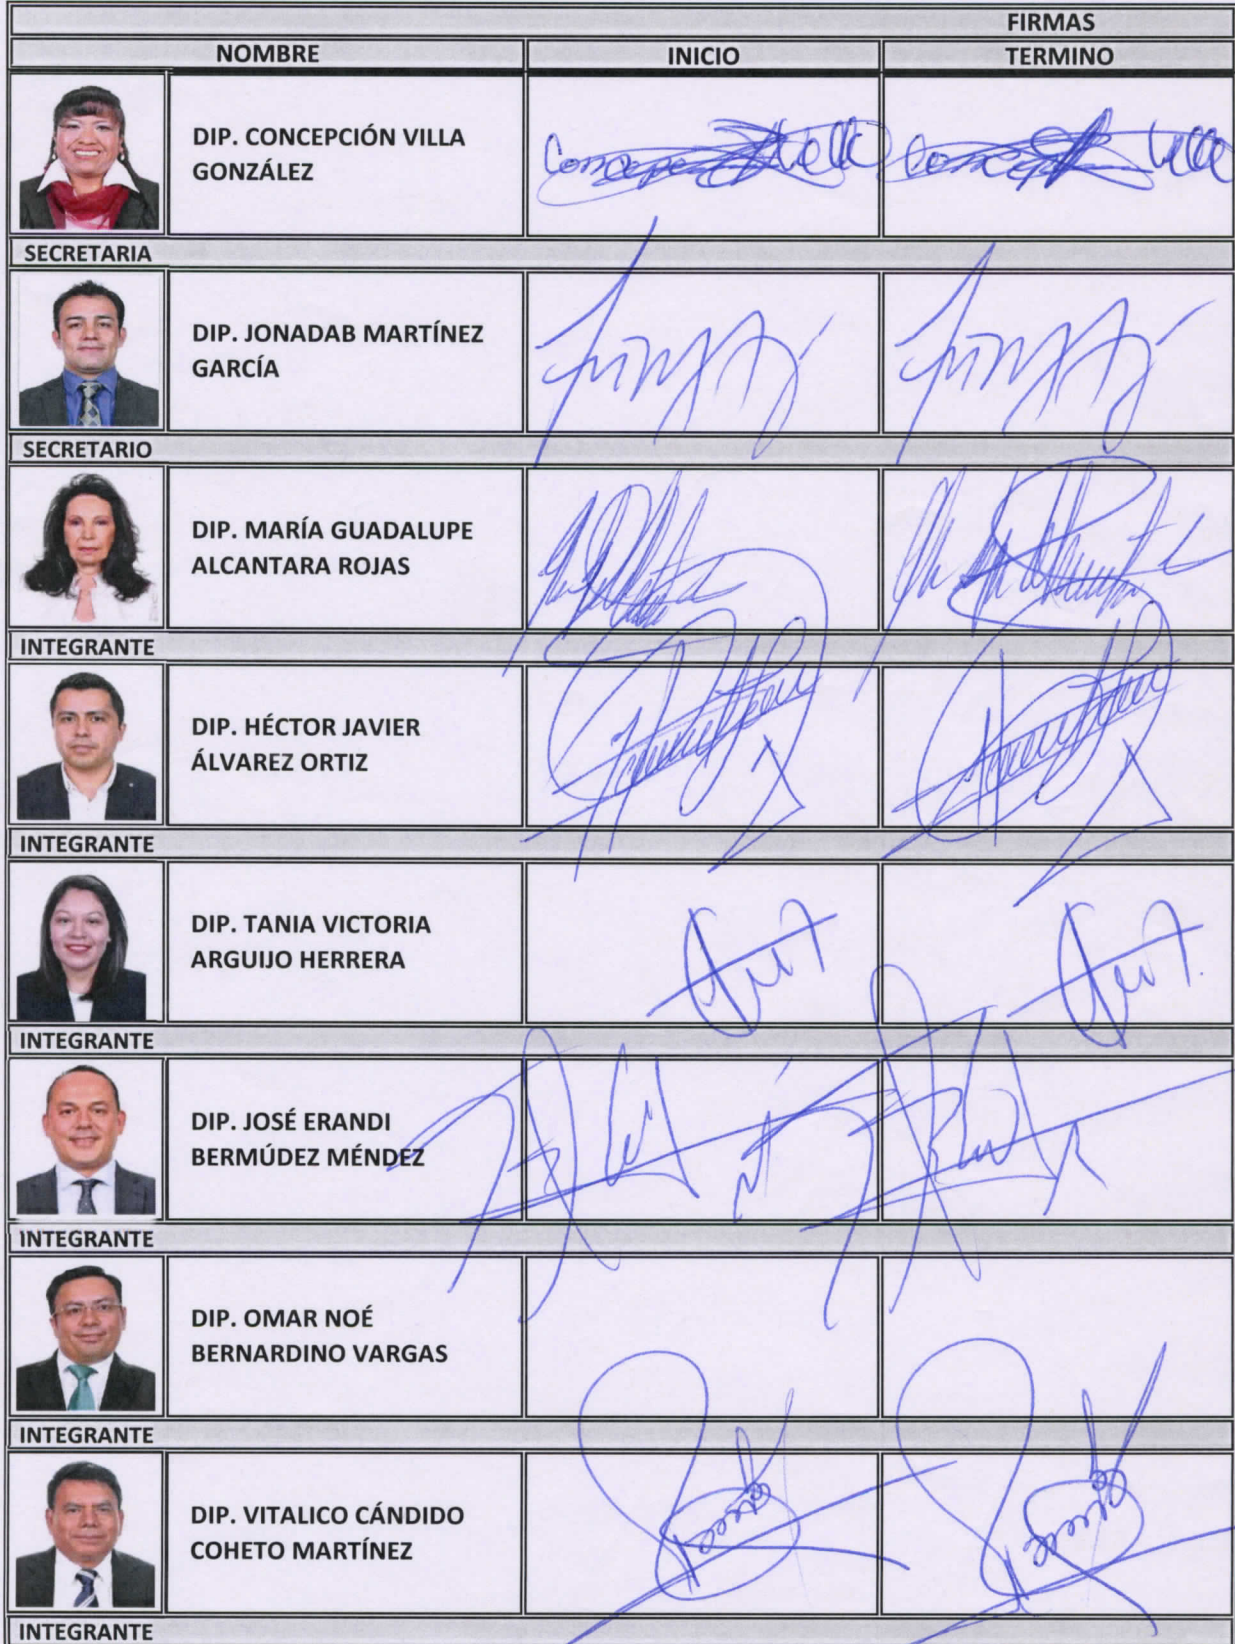 FIRMAS
NOMBRE INICIO TERMINO
DIP. CONCEPCIÓN VILLA
GONZÁLEZ
SECRETARIA
DIP. JONADAB MARTÍNEZ
GARCÍA
SECRETARIO
DIP. MARÍA GUADALUPE
ALCANTARA ROJAS
INTEGRANTE
DIP. HÉCTOR JAVIER
ÁLVAREZ ORTIZ
INTEGRANTE
DIP. TANIA VICTORIA
ARGUIJO HERRERA
INTEGRANTE
DIP. JOSÉ ERANDI
BERMÚDEZ MÉNDEZ
INTEGRANTE
DIP. OMAR NOÉ
BERNARDINO VARGAS
INTEGRANTE
DIP. VITALICO CÁNDIDO
COHETO MARTÍNEZ
INTEGRANTE